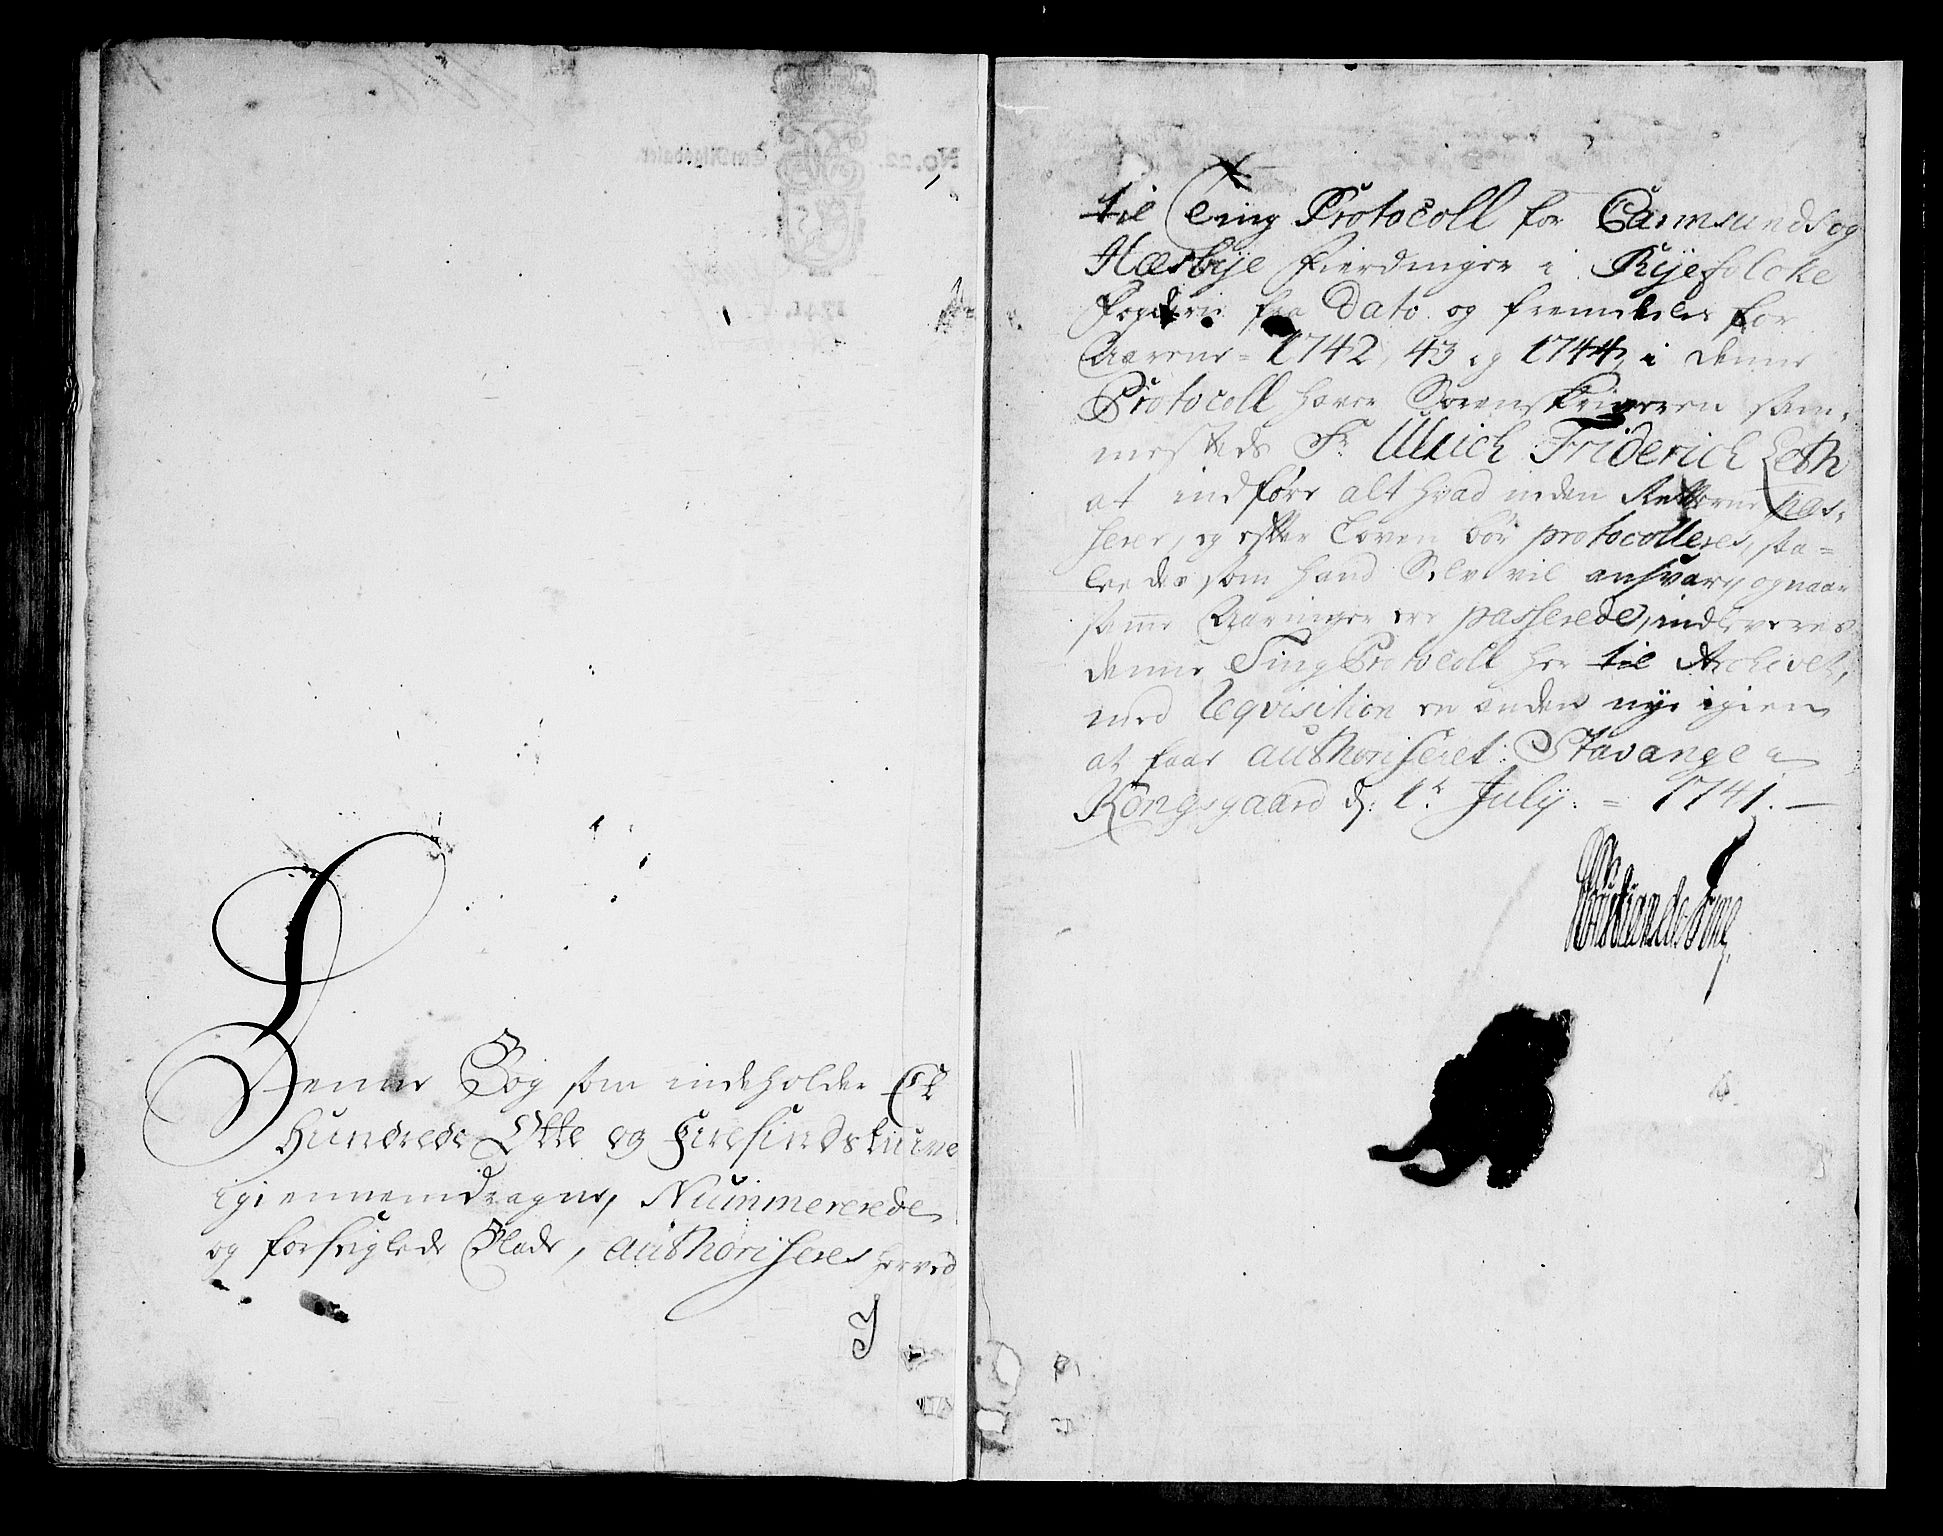 Denne Bog som indeholder Et
Hundrede Otte og Firesindstiuve
igiennemdragne, Nummererede
og forseiglede Blade, authoriseres herved
J
til Ting Protocoll for Carmsunds og
Hæsbye Fierdinger i Ryefolcke
Fogderie fra Dato og fremdeeles for
Aarene = 1742, 43 og 1744, i denne
Protocoll haver Sorenskriveren sam-
mesteds Sr. Ulrich Friderich Leth
at indføre alt hvad inden Retterne pas-
serer, og efter Loven bør protocolleres, saa=
leedes som hand Selv vil ansvare, og naar
samme Aaringer ere passerede, indleveres
denne Ting Protocoll her til Archivet,
med Reqvisition en anden nye igien
at faae authoriseret. Stavanger
Kongsgaard d: 1t July: = 1741. —